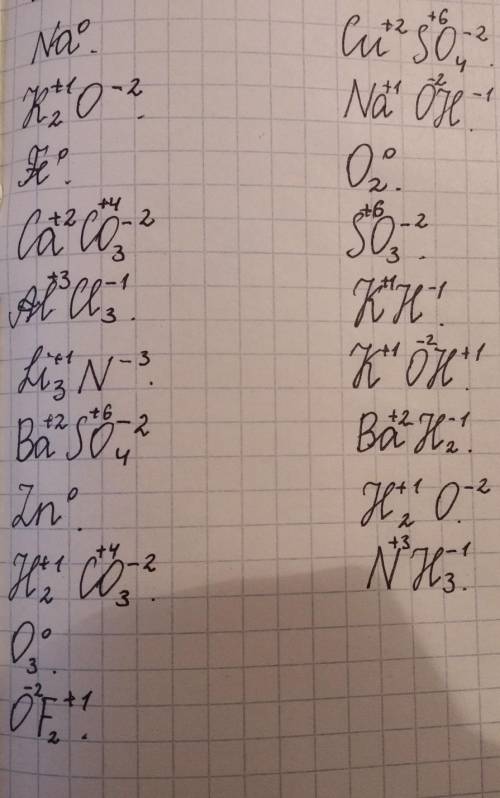 Na⁰.
K₂⁺¹O⁻².
H⁰.
Ca⁺²C⁺⁴O₃⁻²
Al⁺³Cl₃⁻¹.
Li₃⁺¹N⁻³.
Ba⁺²S⁺⁶O₄⁻²
Zn⁰.
H₂⁺¹C⁺⁴O₃⁻².
O₃⁰.
O⁻²F₂⁺¹.
Cu⁺²S⁺⁶O₄⁻².
Na⁺¹O⁻²H⁻¹.
O₂⁰.
S⁺⁶O₃⁻².
K⁺¹H⁻¹.
K⁺¹O⁻²H⁺¹
Ba⁺²H₂⁻¹.
H₂⁺¹O⁻².
N⁺³H₃⁻¹.